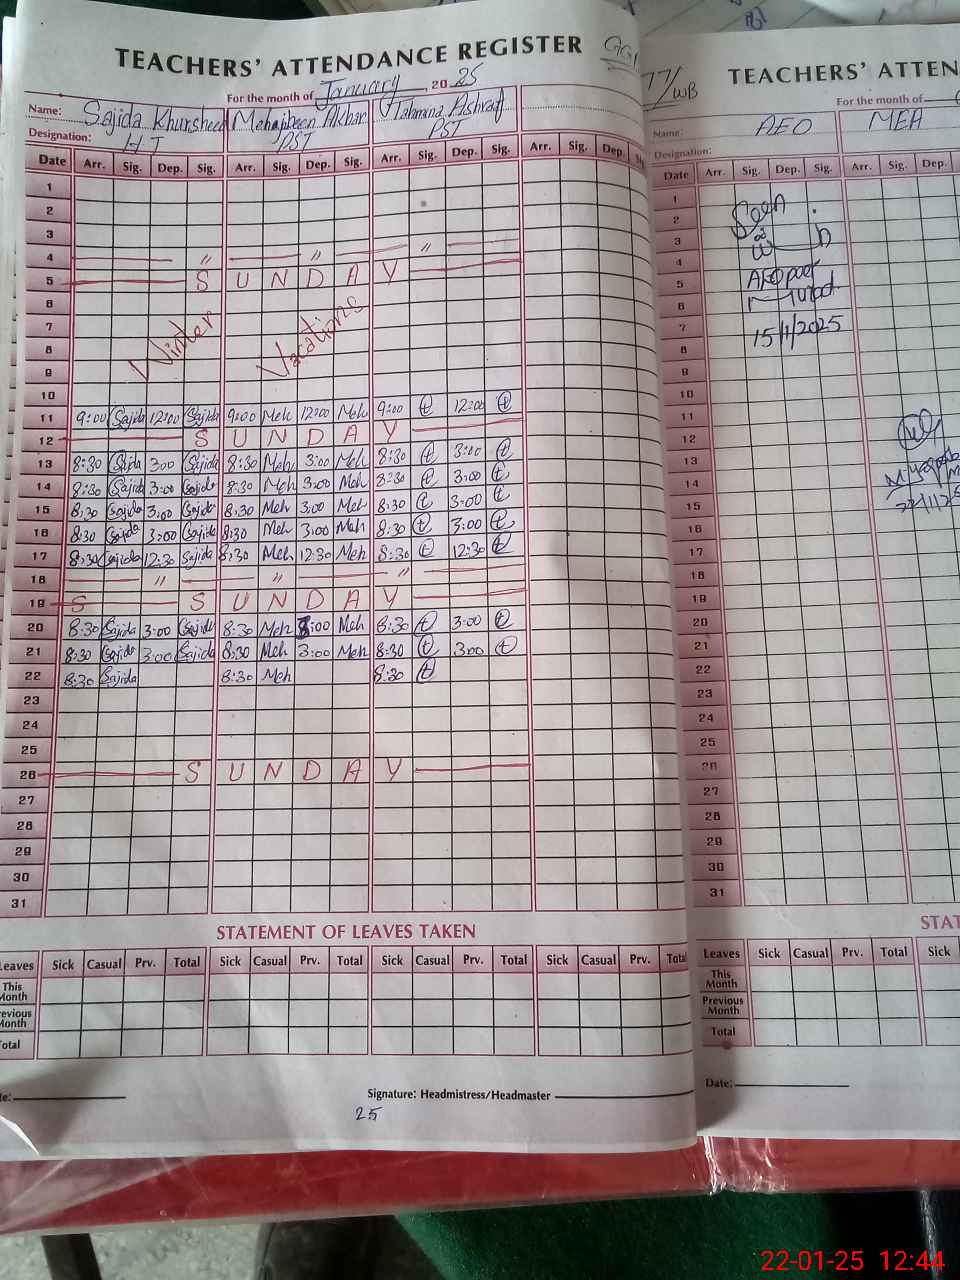 TEACHERS' ATTENDANCE REGISTER
For the month of January, 2025
Name: Sajida Khursheed Mehajbeen Akbar Tahmina Ashraf
Designation: HT PST PST
Date Arr. Sig. Dep. Sig. Arr. Sig. Dep. Sig. Arr. Sig. Dep. Sig. Arr. Sig. Dep.
1
2
3
4 — " — " — " —
5 — S U N D A Y —
6
7
Winter Vacations
8
9
10
11 9:00 Sajida 12:00 Sajida 9:00 Meh 12:00 Meh 9:00 t 12:00 t
12 — S U N D A Y —
13 8:30 Sajida 3:00 Sajida 8:30 Meh 3:00 Meh 8:30 t 3:00 t
14 8:30 Sajida 3:00 Sajida 8:30 Meh 3:00 Meh 8:30 t 3:00 t
15 8:30 Sajida 3:00 Sajida 8:30 Meh 3:00 Meh 8:30 t 3:00 t
16 8:30 Sajida 3:00 Sajida 8:30 Meh 3:00 Meh 8:30 t 3:00 t
17 8:30 Sajida 12:30 Sajida 8:30 Meh 12:30 Meh 8:30 t 12:30 t
18 — " — " — " —
19 S — S U N D A Y —
20 8:30 Sajida 3:00 Sajida 8:30 Meh 3:00 Meh 8:30 t 3:00 t
21 8:30 Sajida 3:00 Sajida 8:30 Meh 3:00 Meh 8:30 t 3:00 t
22 8:30 Sajida 8:30 Meh 8:30 t
23
24
25
26 — S U N D A Y —
27
28
29
30
31
STATEMENT OF LEAVES TAKEN
Leaves Sick Casual Prv. Total Sick Casual Prv. Total Sick Casual Prv. Total Sick Casual Prv. Total
This Month
Previous Month
Total
Signature: Headmistress/Headmaster
25
77/WB
TEACHERS' ATTEN
For the month of
Name: AEO MEA
Designation:
Date Arr. Sig. Dep. Sig. Arr. Sig. Dep.
1
2 Seen
3
4
5
6
7 15/1/2025
8
9
10
11
12
13
14
15
16
17
18
19
20
21
22
23
24
25
26
27
28
29
30
31
STAT
Leaves Sick Casual Prv. Total Sick
This Month
Previous Month
Total
Date:
22-01-25 12:44